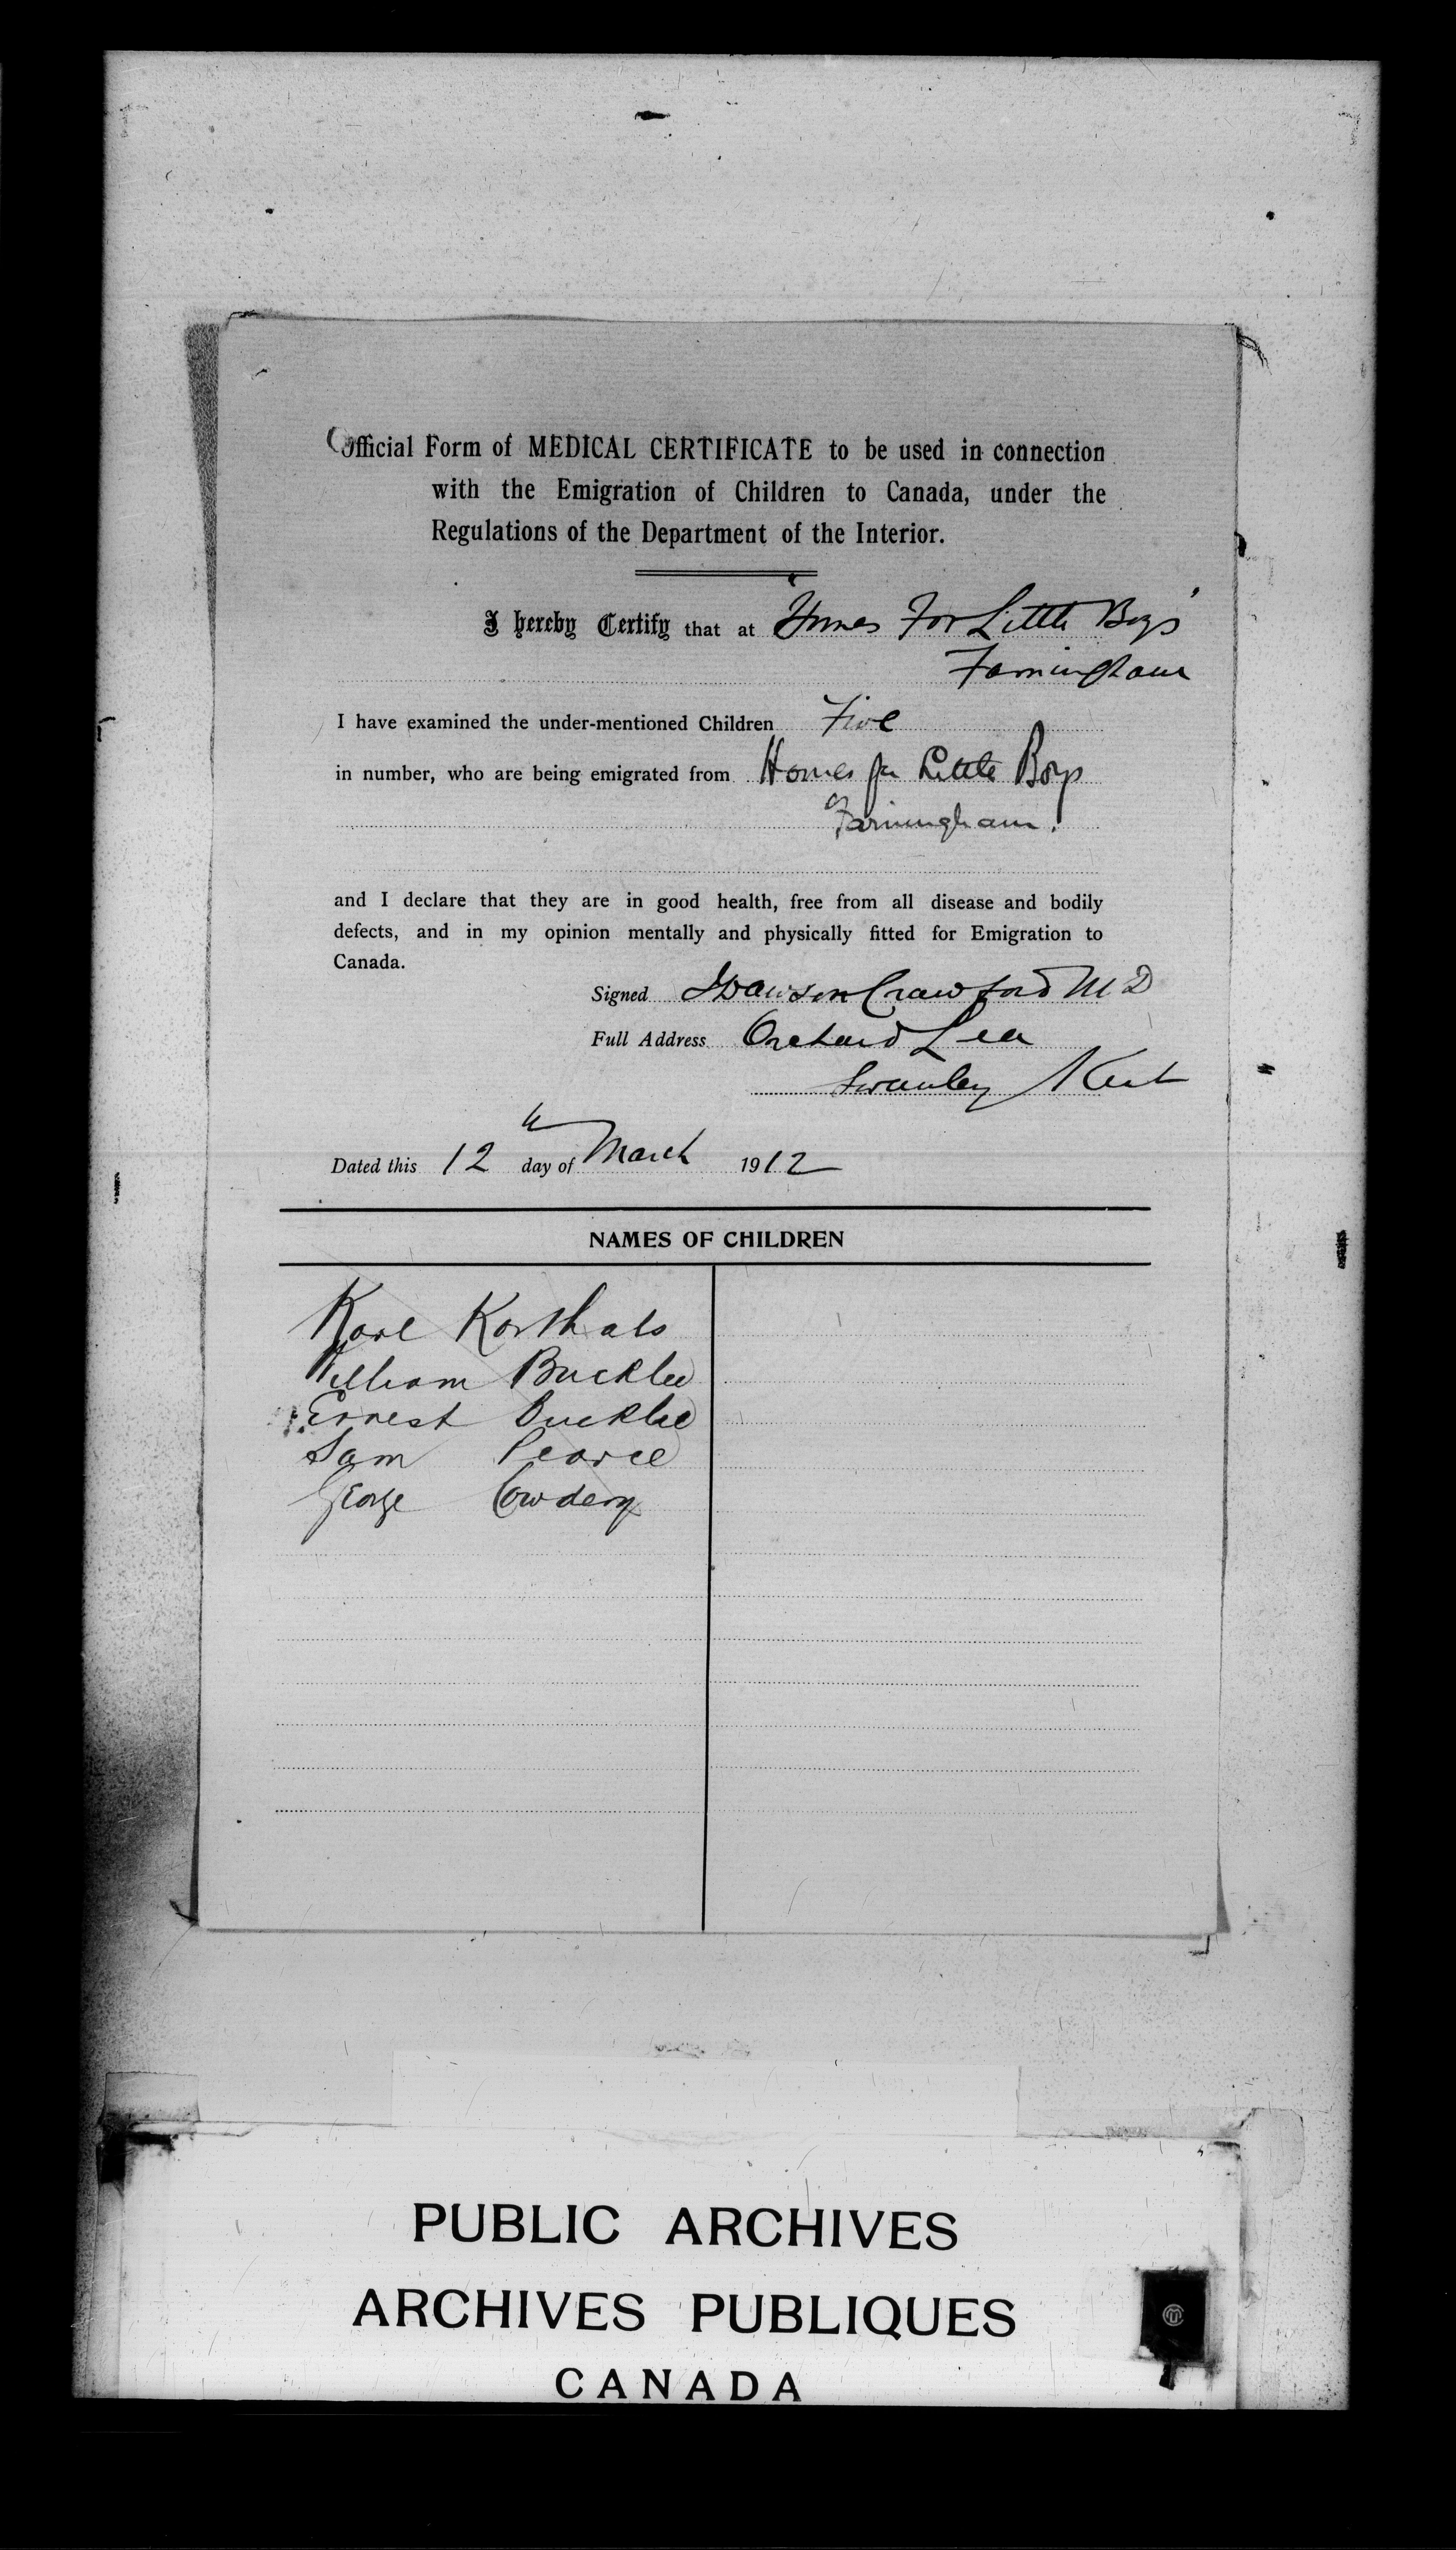 Official Form of MEDICAL CERTIFICATE to be used in connection
with the Emigration of Children to Canada, under the
Regulations of the Department of the Interior.
I hereby Certify that at "Homes For Little Boys"
Farningham
I have examined the under-mentioned Children Five
in number, who are being emigrated from Homes for Little Boys
Farningham.
and I declare that they are in good health, free from all disease and bodily
defects, and in my opinion mentally and physically fitted for Emigration to
Canada.
Signed Dawson Crawford MD
Full Address Orchard Lea
Swanley Kent
Dated this 12th day of March 1912
NAMES OF CHILDREN
Karl Korthals
William Bucklee
Ernest Bucklee
Sam Pearce
George Cowdery
PUBLIC ARCHIVES
ARCHIVES PUBLIQUES
CANADA